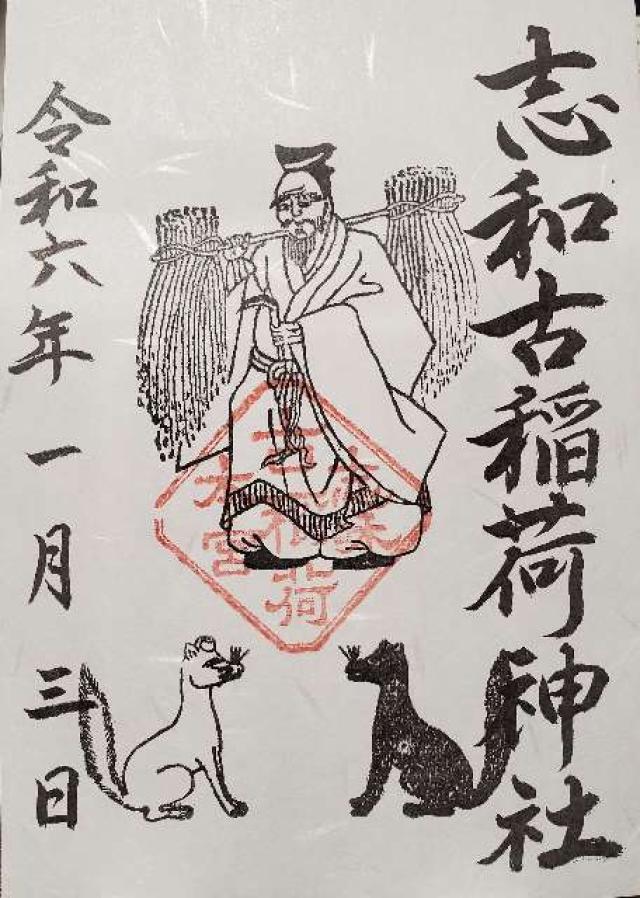 志和古稲荷神社
令和六年一月三日